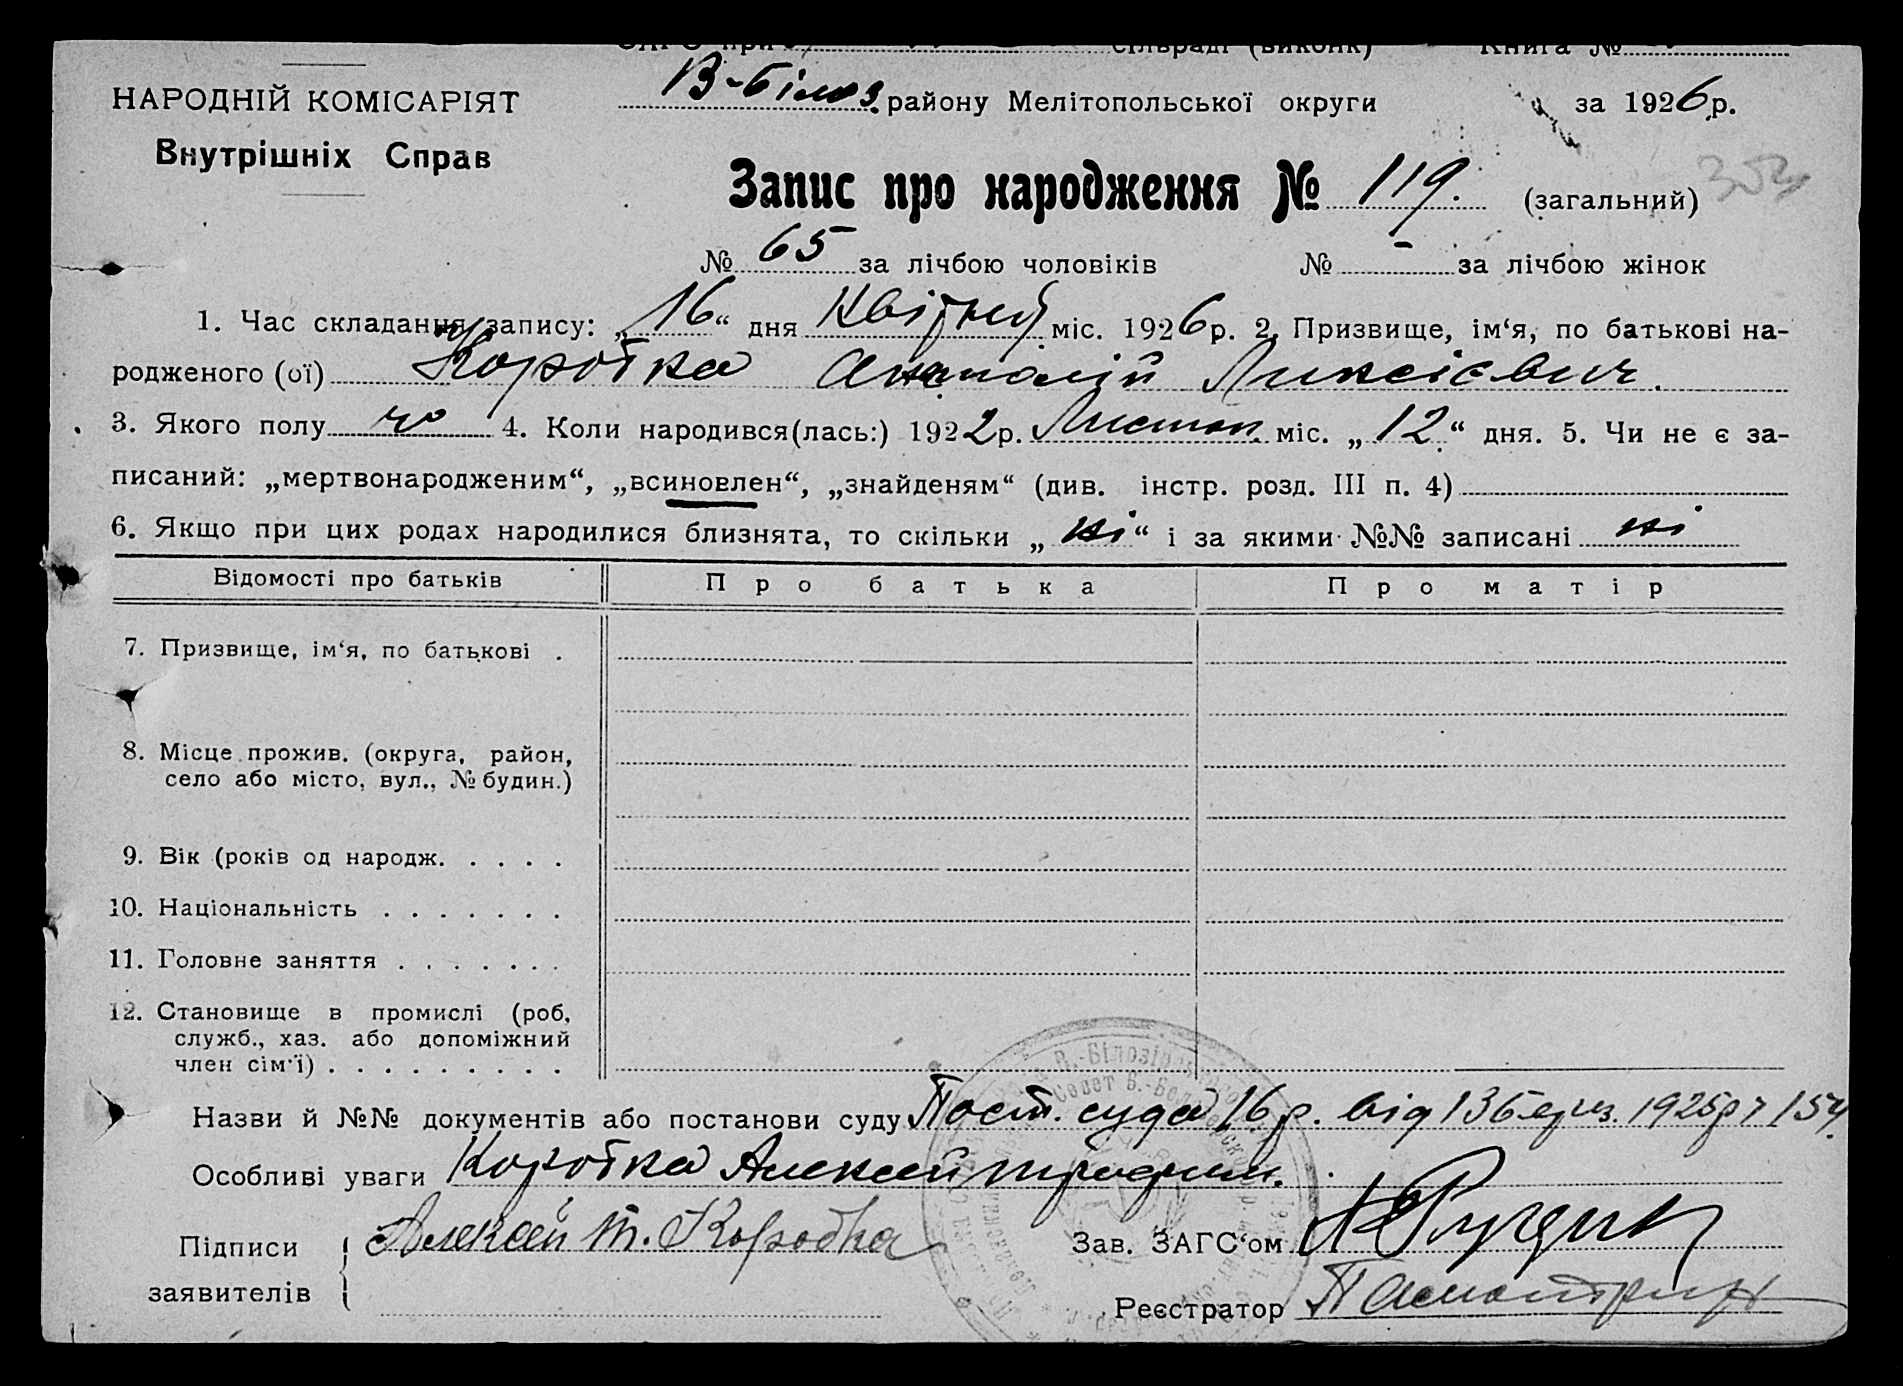 сільраді (виконк) Книга №
НАРОДНІЙ КОМІСАРІЯТ
Внутрішніх Справ
В-Білоз. району Мелітопольської округи за 1926 р.
Запис про народження № 119. (загальний)
№ 65 за лічбою чоловіків № - за лічбою жінок
1. Час складання запису: „16“ дня Квітня міс. 1926 р. 2. Призвище, ім‘я, по батькові на-
родженого (ої) Коротка Анатолій Ликсієвич.
3. Якого полу чо 4. Коли народився(лась:) 1922 р. Листоп. міс. „12“ дня. 5. Чи не є за-
писаний: „мертвонародженим“, „всиновлен“, „знайденям“ (див. інстр. розд. III п. 4)
6. Якщо при цих родах народилися близнята, то скільки „ні“ і за якими №№ записані ні
Відомості про батьків Про батька Про матір
7. Призвище, ім‘я, по батькові .
8. Місце прожив. (округа, район,
село або місто, вул., № будин.)
9. Вік (років од народж. . . . .
10. Національність . . . . . . .
11. Головне заняття . . . . . . .
12. Становище в промислі (роб,
служб., хаз. або допоміжний
член сім‘ї) . . . . . . . . .
Назви й №№ документів або постанови суду Пост. суда 16 р. від 1925 р 154.
Особливі уваги Коротка Алексей Трофим.
Підписи Алексей Т. Коротка Зав. ЗАГС‘ом
заявителів Реєстратор